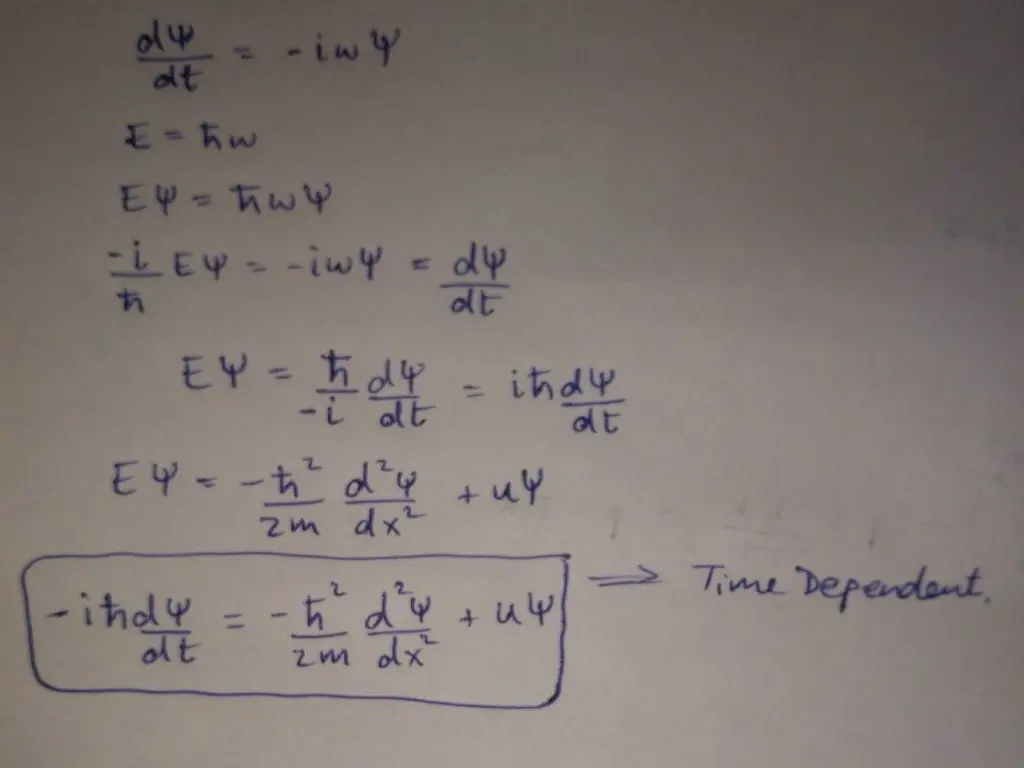 dΨ/dt = -iωΨ
E = ħω
EΨ = ħωΨ
-i/ħ EΨ = -iωΨ = dΨ/dt
EΨ = ħ/-i dΨ/dt = iħ dΨ/dt
EΨ = -ħ²/2m d²Ψ/dx² + uΨ
-iħ dΨ/dt = -ħ²/2m d²Ψ/dx² + uΨ ⟹ Time Dependent.